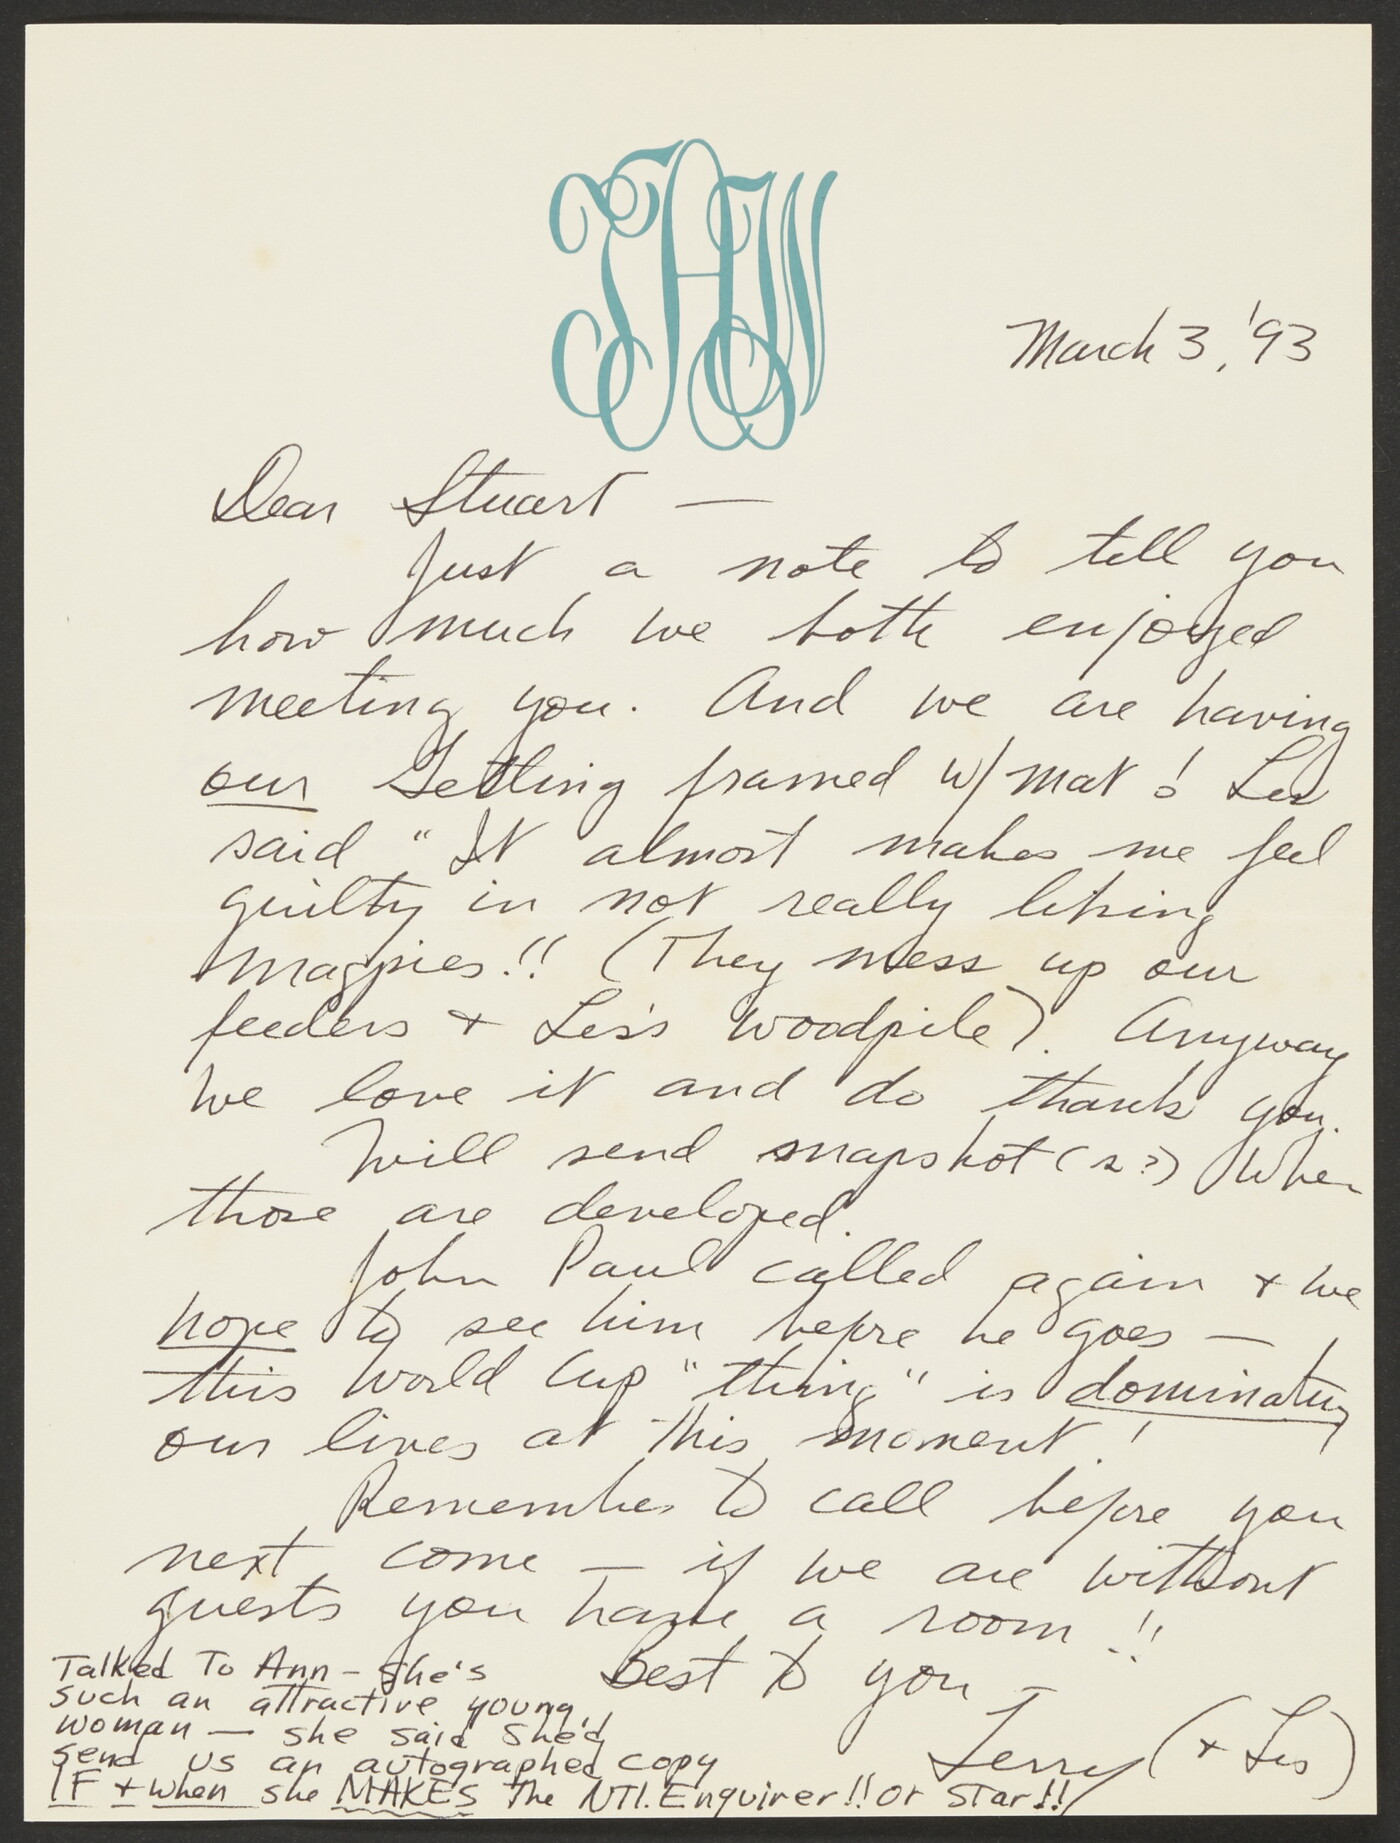 THW
March 3, '93
Dear Stuart —
Just a note to tell you
how much we both enjoyed
meeting you. And we are having
our Getting framed w/ mat! Les
said "It almost makes me feel
guilty in not really liking
magpies!! (They mess up our
feeders + Les's woodpile). Anyway
we love it and do thank you.
Will send snapshot(s?) when
those are developed.
John Paul called again + we
hope to see him before he goes —
this World Cup "thing" is dominating
our lives at this moment!
Remember to call before you
next come — if we are without
guests you have a room!!
Best to you —
Terry (+ Les)
Talked To Ann — she's
such an attractive young
woman — she said she'd
send us an autographed copy
IF + when she MAKES the NTl. Enquirer!! or Star!!